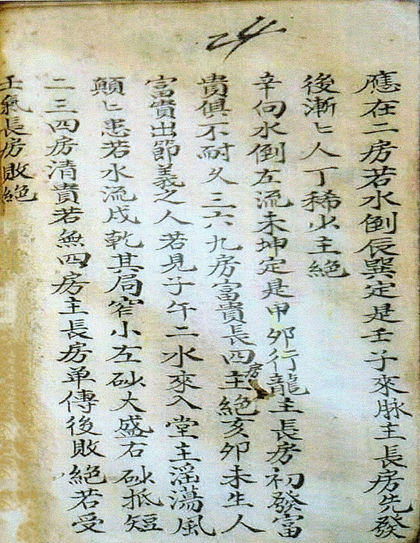 應在二房若水倒辰巽定是壬子來脉主長房先發
後漸〻人丁稀少主絕
辛向水倒左流未坤定是甲夘行龍主長房初發富
貴俱不耐久三六九房富貴長四房主絕亥夘未生人
富貴出節義之人若見子午二水來入堂主淫蕩風
顛〻患若水流戌乾其局窄小左砂大盛右砂抵短
二三四房清貴若無四房主長房单傳後敗絕若受
壬氣長房敗絕